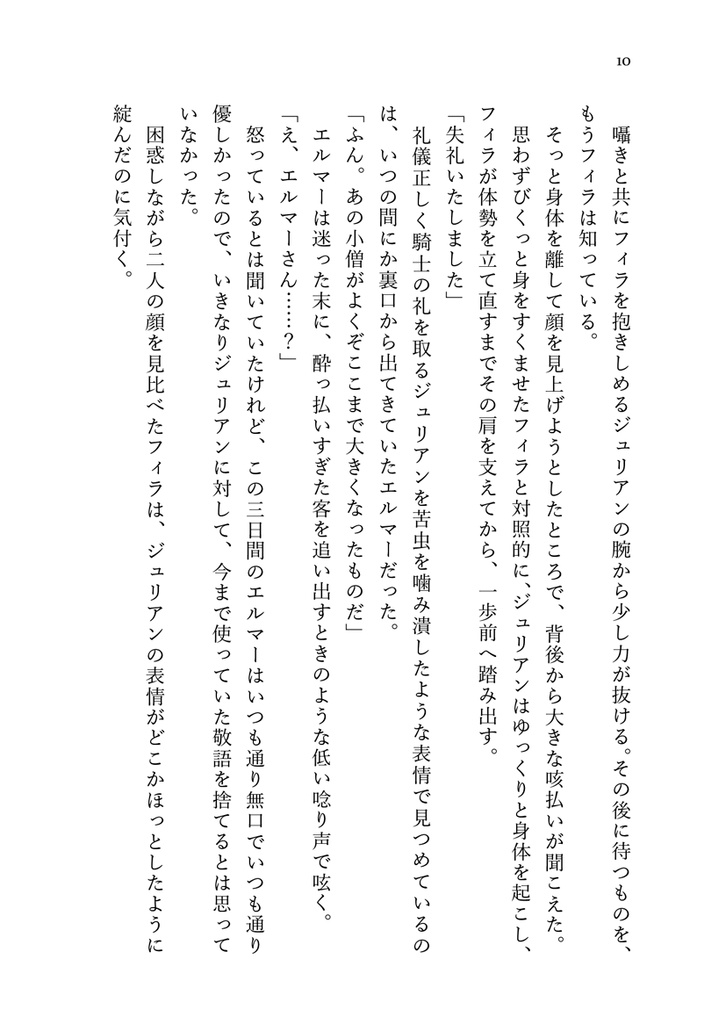 10
　囁きと共にフィラを抱きしめるジュリアンの腕から少し力が抜ける。その後に待つものを、
もうフィラは知っている。
　そっと身体を離して顔を見上げようとしたところで、背後から大きな咳払いが聞こえた。
　思わずびくっと身をすくませたフィラと対照的に、ジュリアンはゆっくりと身体を起こし、
フィラが体勢を立て直すまでその肩を支えてから、一歩前へ踏み出す。
「失礼いたしました」
　礼儀正しく騎士の礼を取るジュリアンを苦虫を噛み潰したような表情で見つめているの
は、いつの間にか裏口から出てきていたエルマーだった。
「ふん。あの小僧がよくぞここまで大きくなったものだ」
　エルマーは迷った末に、酔っ払いすぎた客を追い出すときのような低い唸り声で呟く。
「え、エルマーさん……？」
　怒っているとは聞いていたけれど、この三日間のエルマーはいつも通り無口でいつも通り
優しかったので、いきなりジュリアンに対して、今まで使っていた敬語を捨てるとは思って
いなかった。
　困惑しながら二人の顔を見比べたフィラは、ジュリアンの表情がどこかほっとしたように
綻んだのに気付く。